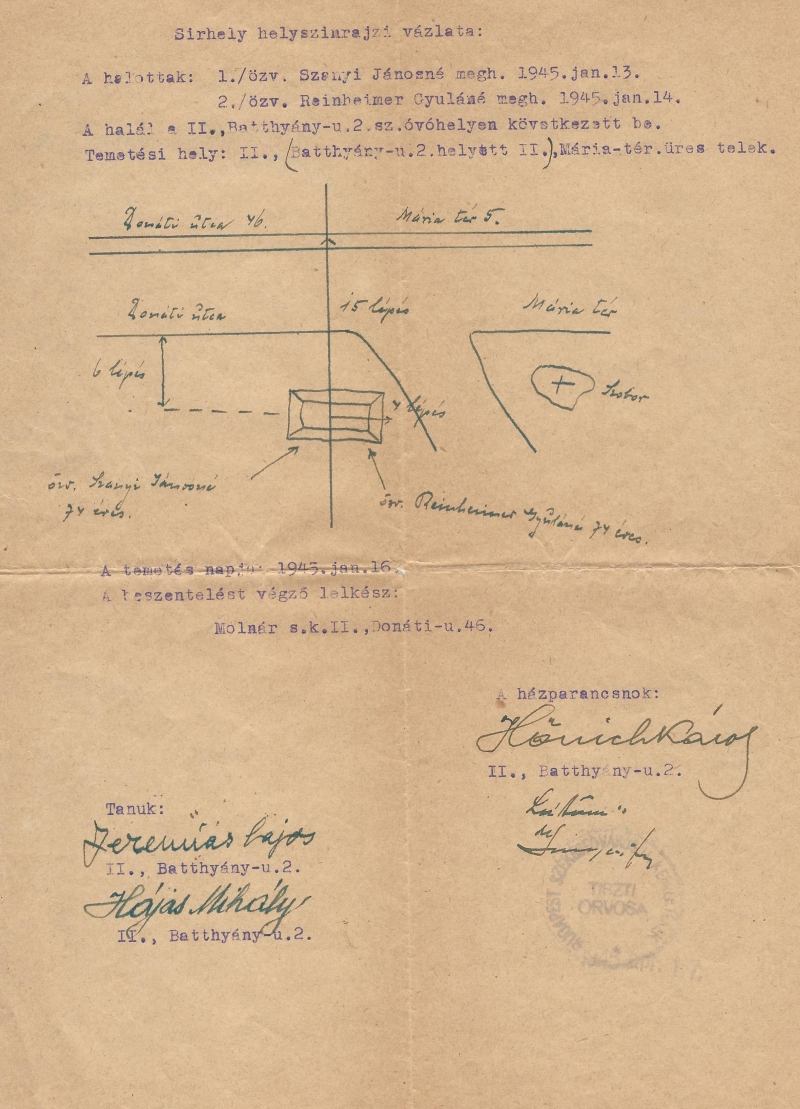 Sirhely helyszinrajzi vázlata:
A halottak: 1./özv. Szanyi Jánosné megh. 1945.jan.13.
2./özv. Reinheimer Gyuláné megh. 1945.jan.14.
A halál a II.,Batthyány-u.2.sz.óvóhelyen következett be.
Temetési hely: II.,(Batthyány-u.2.helyett II.),Mária-tér.üres telek.
Donáti útca 46.
Mária tér 5.
Donáti útca
15 lépés
Mária tér
6 lépés
Szobor
4 lépés
özv. Szanyi Jánosné
74 éves.
özv. Reinheimer Gyuláné 74 éves.
A temetés napja: 1945.jan.16.
A beszentelést végző lelkész:
Molnár s.k.II.,Donáti-u.46.
A házparancsnok:
Hönich Károly
II., Batthyány-u.2.
Láttam
Tanuk:
Jeremiás Lajos
II., Batthyány-u.2.
Hájas Mihály
II., Batthyány-u.2.
TISZTI
ORVOSA